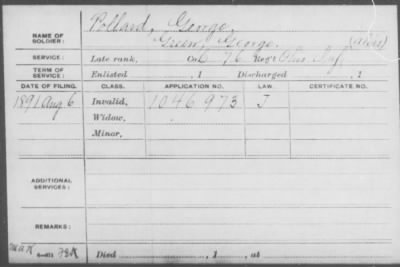 NAME OF SOLDIER: Pollard, George,
Green, George. (alias)
SERVICE: Late rank, Co. 76 Reg't Ohio Inf
TERM OF SERVICE: Enlisted , 1 Discharged , 1
DATE OF FILING. CLASS. APPLICATION NO. LAW. CERTIFICATE NO.
1891 Aug 6 Invalid, 1046973 J
Widow,
Minor,
ADDITIONAL SERVICES:
REMARKS:
Died , 1 , at